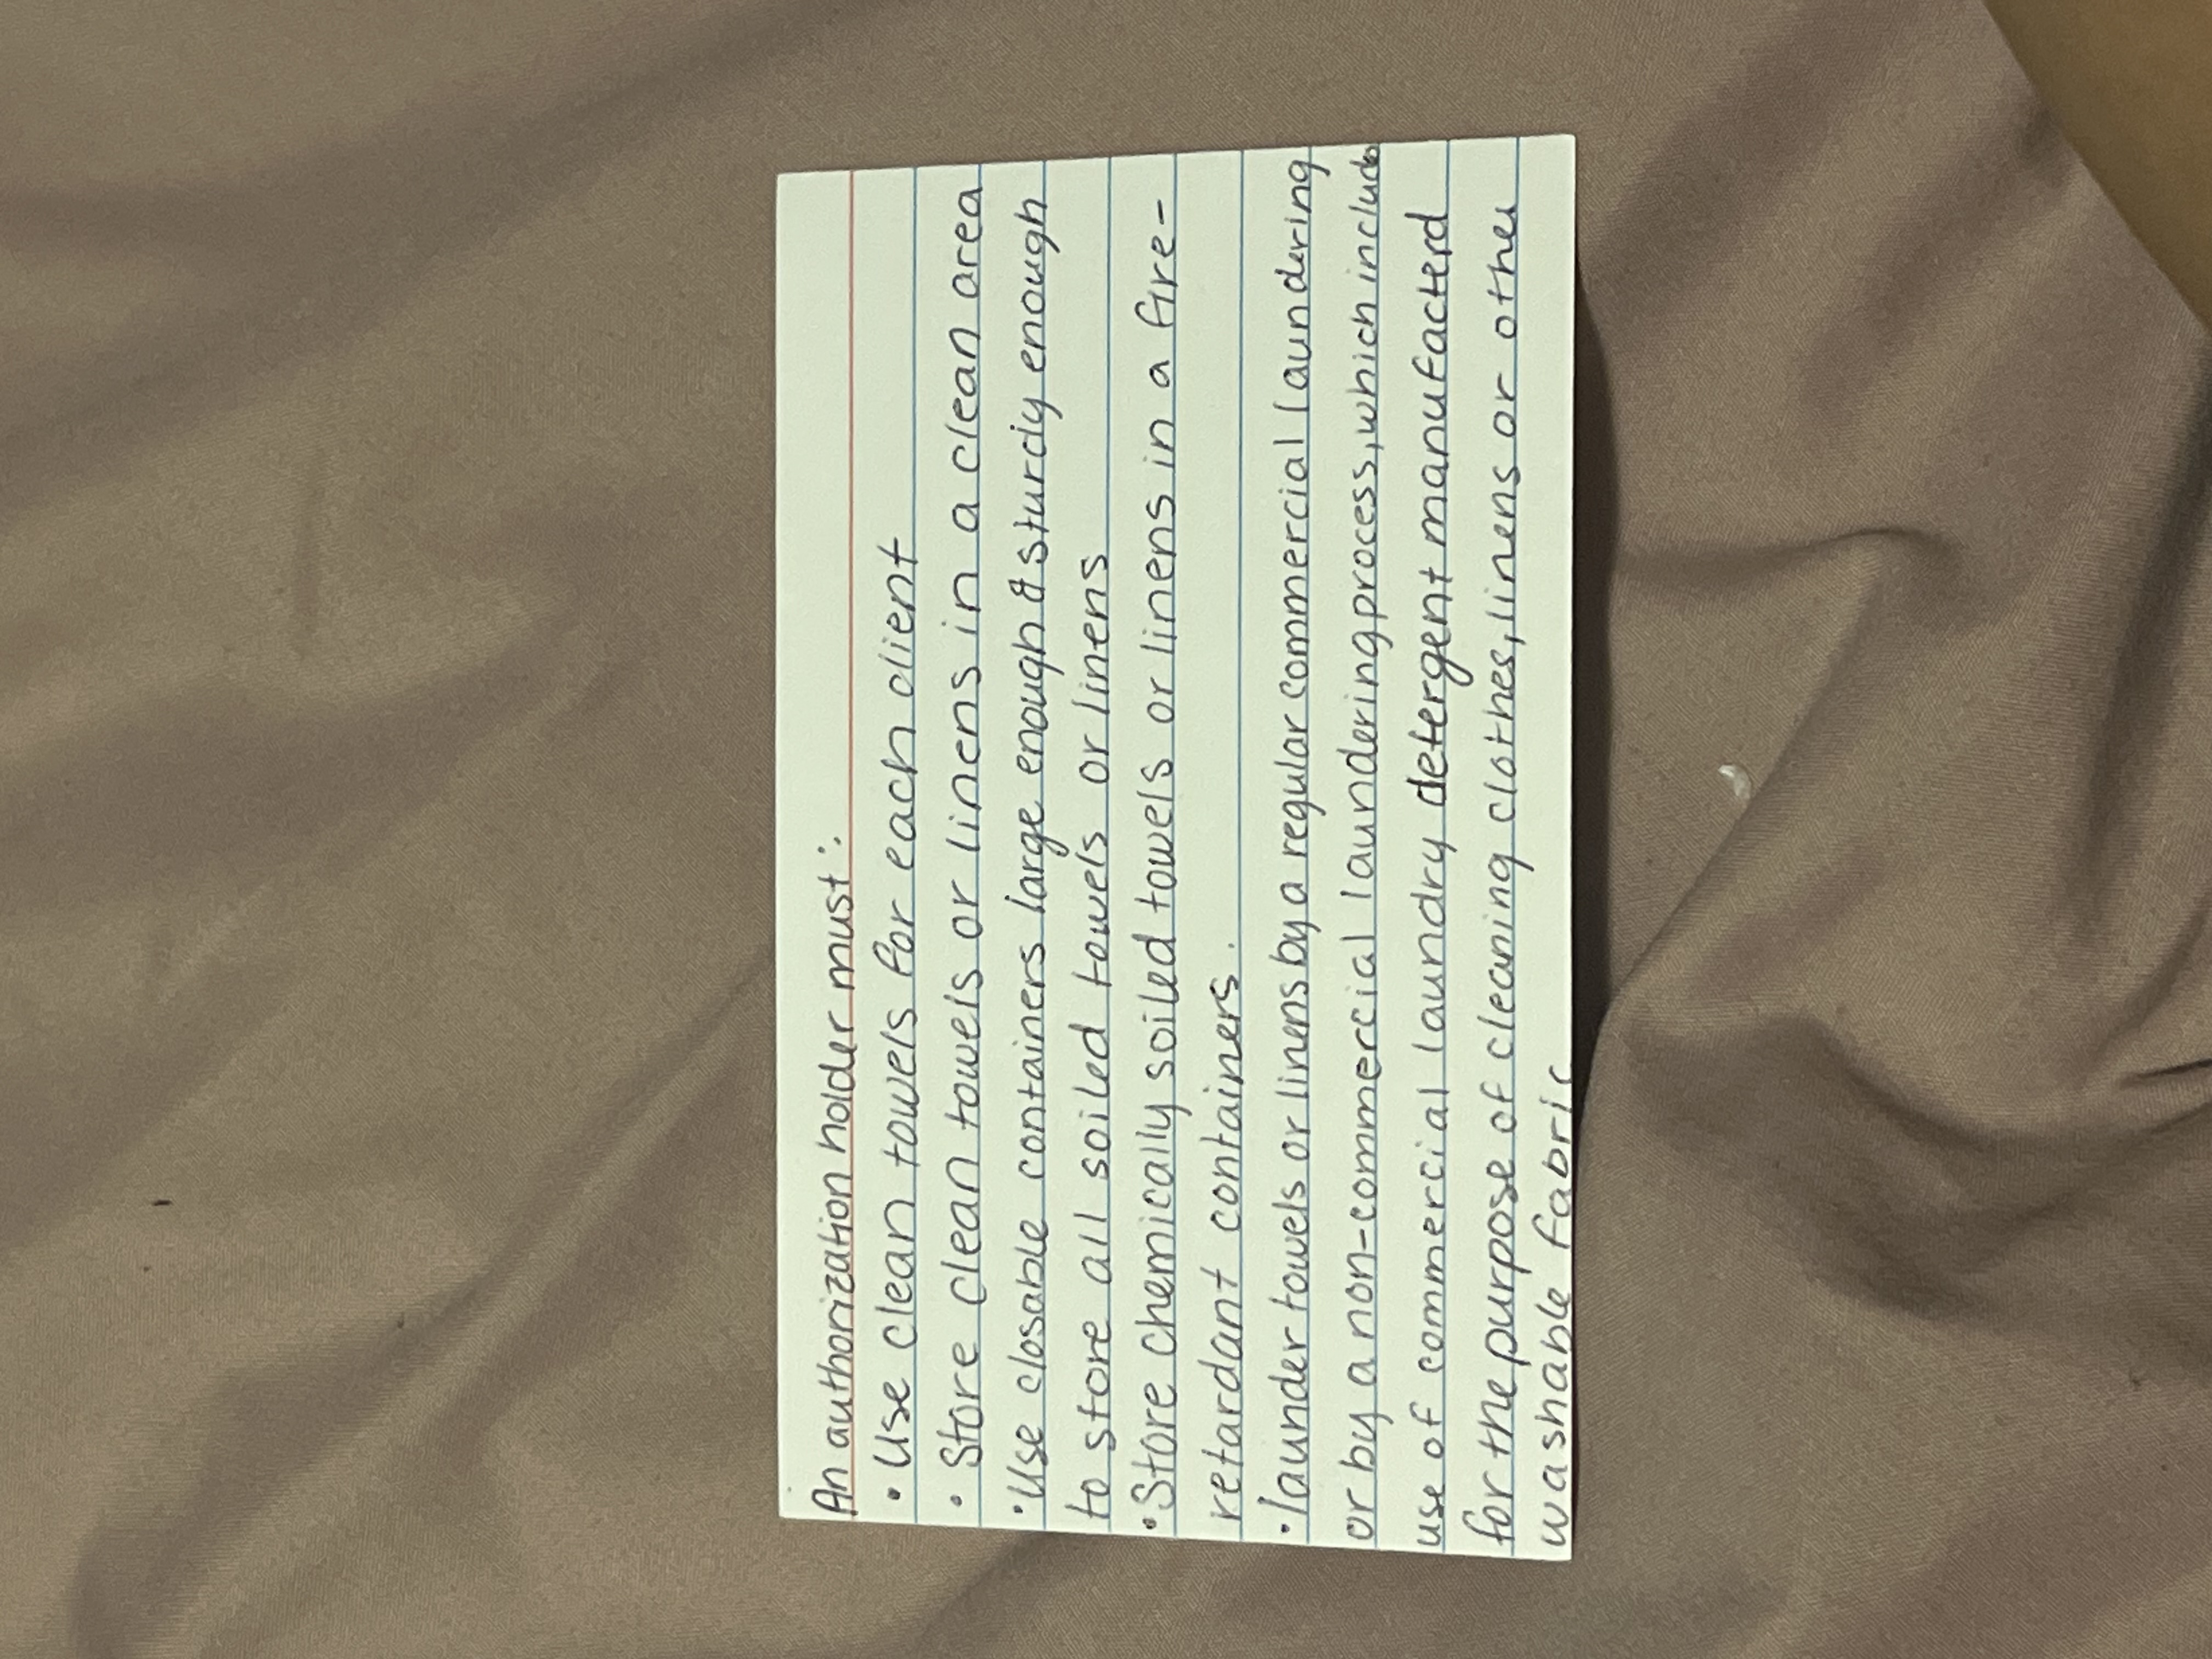 An authorization holder must:
• Use clean towels for each client
• Store clean towels or linens in a clean area
• Use closable containers large enough & sturdy enough
to store all soiled towels or linens
• Store chemically soiled towels or linens in a fire-
retardant containers.
• launder towels or linens by a regular commercial laundering
or by a non-commercial laundering process, which include
use of commercial laundry detergent manufacterd
for the purpose of cleaning clothes, linens or other
washable fabric